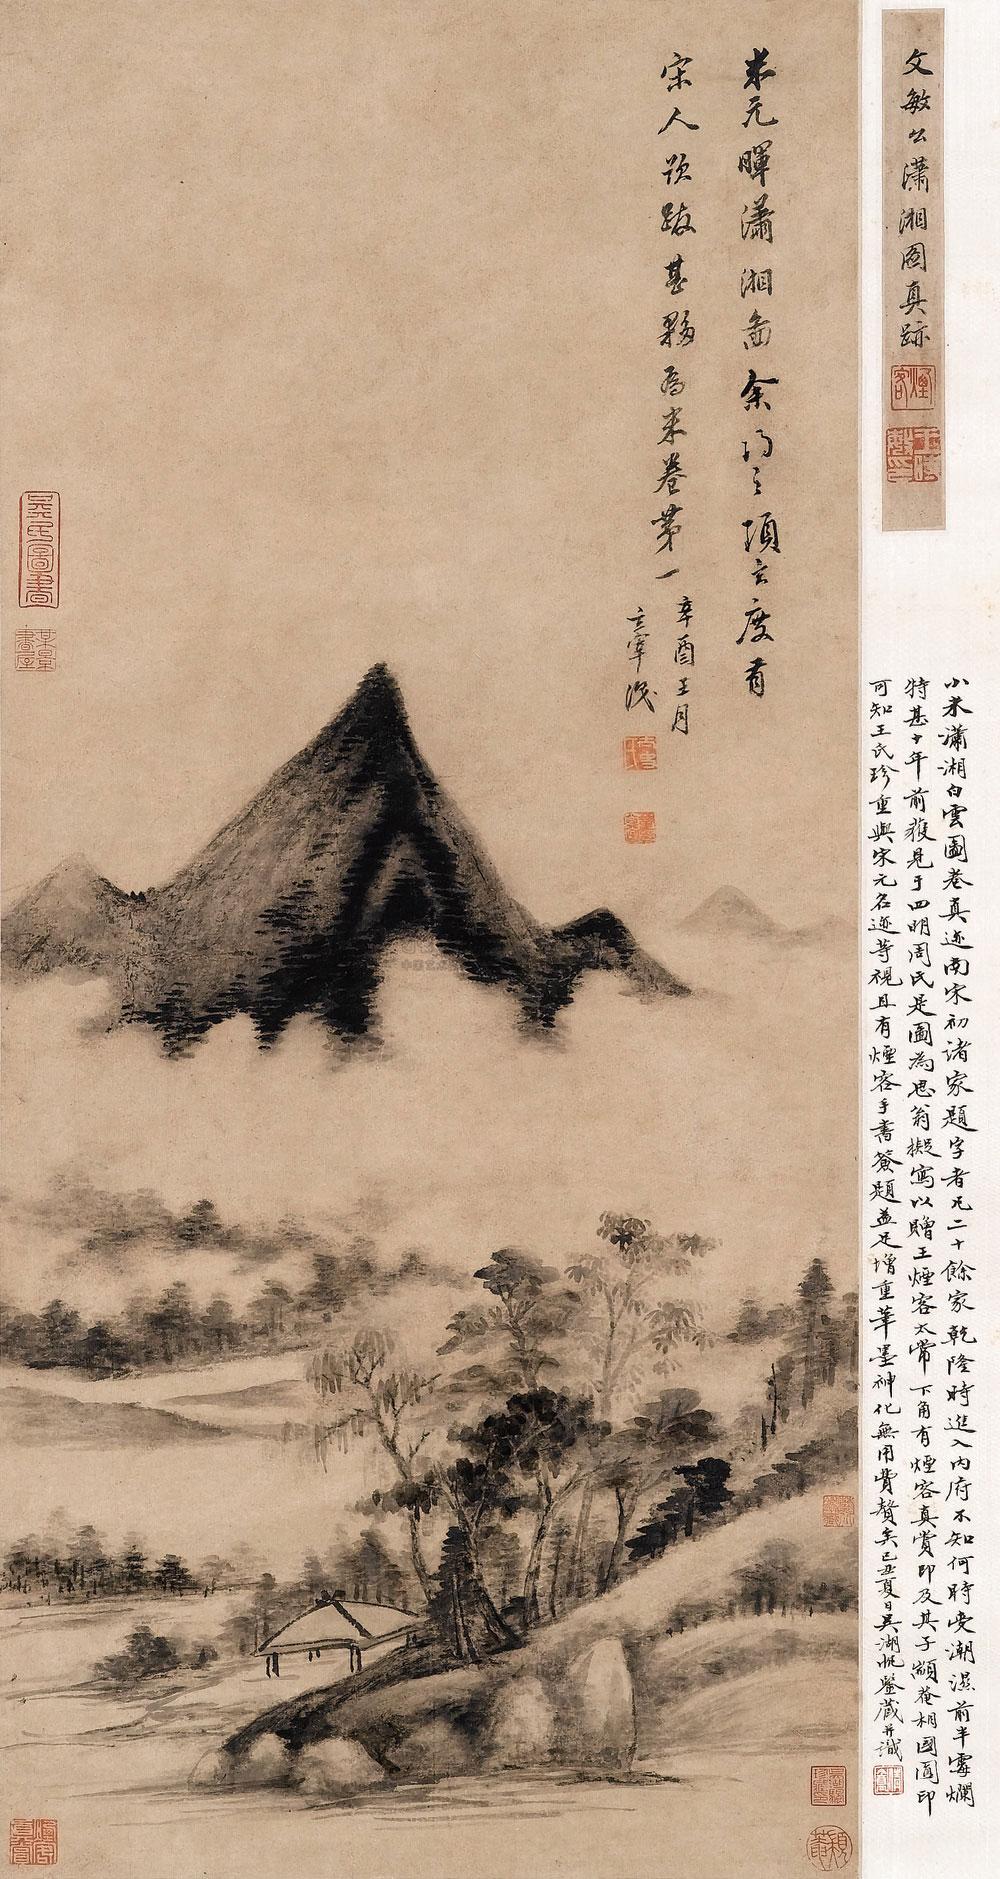 米元暉瀟湘啚余得之項玄度有
宋人題跋甚夥爲米卷第一
辛酉正月
玄宰識
文敏公瀟湘圖真跡
煙客
小米瀟湘白雲圖卷真迹南宋初諸家題字者凡二十餘家乾隆時進入內府不知何時受潮濕前半霉爛
特甚十年前獲見于四明周氏是圖為思翁擬寫以贈王煙客太常下角有煙客真賞印及其子顓菴相國圓印
可知王氏珍重與宋元名迹等視且有煙客手書簽題益足增重筆墨神化無用費贅矣己丑夏日吳湖帆鑒藏并識
吳氏圖書
梅景書屋
煙客真賞
顓菴